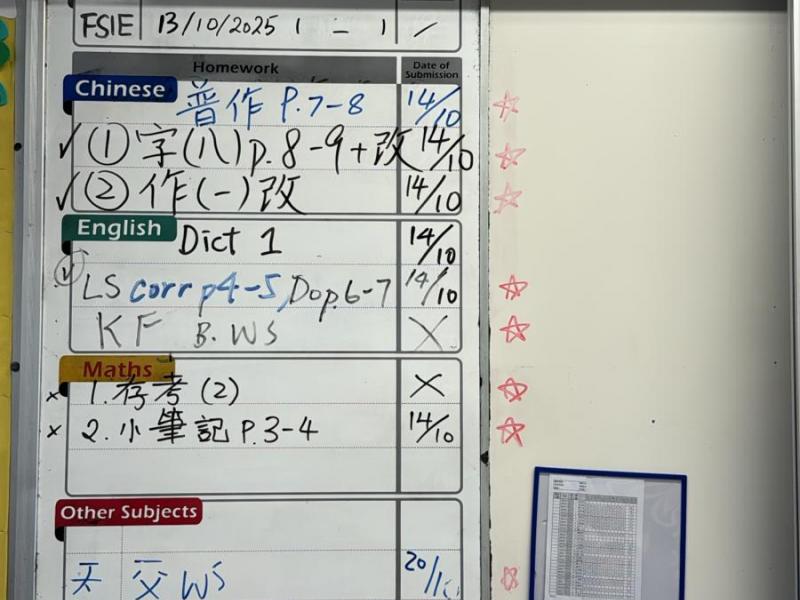 FSIE 13/10/2025 1 - 1 /
Homework Date of Submission
Chinese 普作 P.7-8 14/10
✓ ① 字(八)p.8-9+改 14/10
✓ ② 作(一)改 14/10
English Dict 1 14/10
✓ LS corr p4-5, Do p.6-7 14/10
KF B.WS X
Maths
x 1.存考(2) X
x 2.小筆記 P.3-4 14/10
Other Subjects
WS 20/10